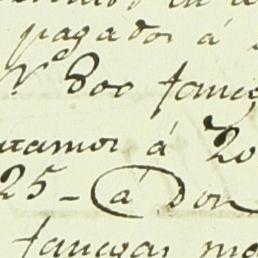 pagador á
800 fane
tamos á 20
25 - á Don
fanegas mo